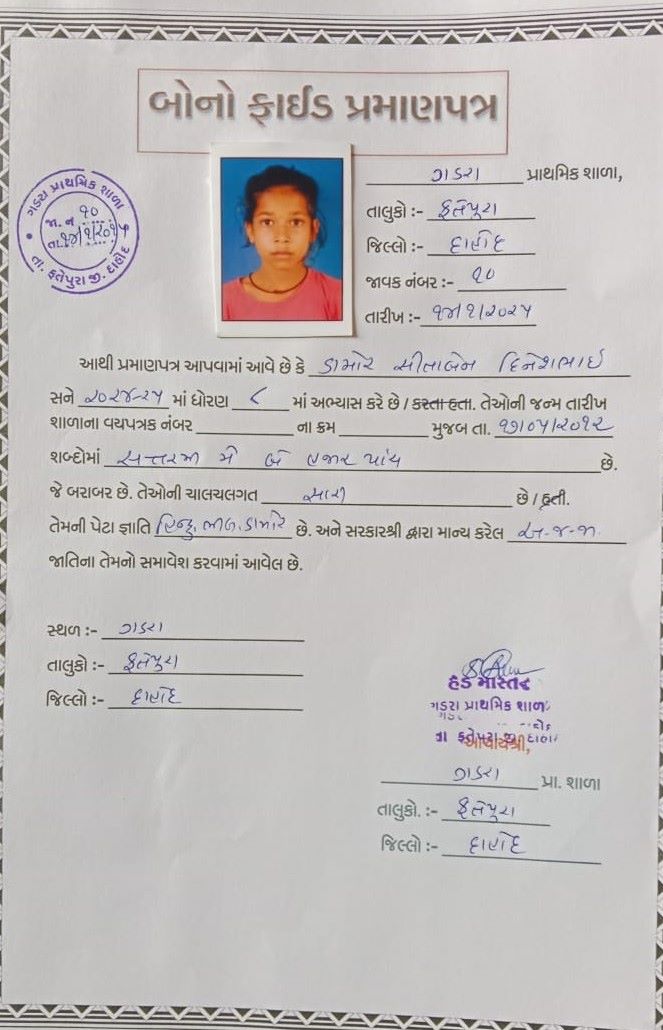 બોનો ફાઈડ પ્રમાણપત્ર
ગડરા પ્રાથમિક શાળા
જા. નં ૧૦
તા. ૧૪/૧/૨૦૨૫
તા. ફતેપુરા જી. દાહોદ
ગડરા પ્રાથમિક શાળા,
તાલુકો :- ફતેપુરા
જિલ્લો :- દાહોદ
જાવક નંબર :- ૧૦
તારીખ :- ૧૪/૧/૨૦૨૫
આથી પ્રમાણપત્ર આપવામાં આવે છે કે ડામોર સીતાબેન દિનેશભાઈ
સને ૨૦૨૪-૨૫ માં ધોરણ ૮ માં અભ્યાસ કરે છે / કરતા હતા. તેઓની જન્મ તારીખ
શાળાના વયપત્રક નંબર ના ક્રમ મુજબ તા. ૧૭/૦૫/૨૦૧૨
શબ્દોમાં સત્તરમી મે બે હજાર છે.
જે બરાબર છે. તેઓની ચાલચલગત સારી છે / હતી.
તેમની પેટા જ્ઞાતિ હિન્દુ ભીલ ડામોર છે. અને સરકારશ્રી દ્વારા માન્ય કરેલ અ.જ.જા.
જાતિના તેમનો સમાવેશ કરવામાં આવેલ છે.
સ્થળ :- ગડરા
તાલુકો :- ફતેપુરા
જિલ્લો :- દાહોદ
હેડ માસ્તર
ગડરા પ્રાથમિક શાળા
તા ફતેપુરા જી દાહોદ
આચાર્યશ્રી,
ગડરા પ્રા. શાળા
તાલુકો. :- ફતેપુરા
જિલ્લો :- દાહોદ